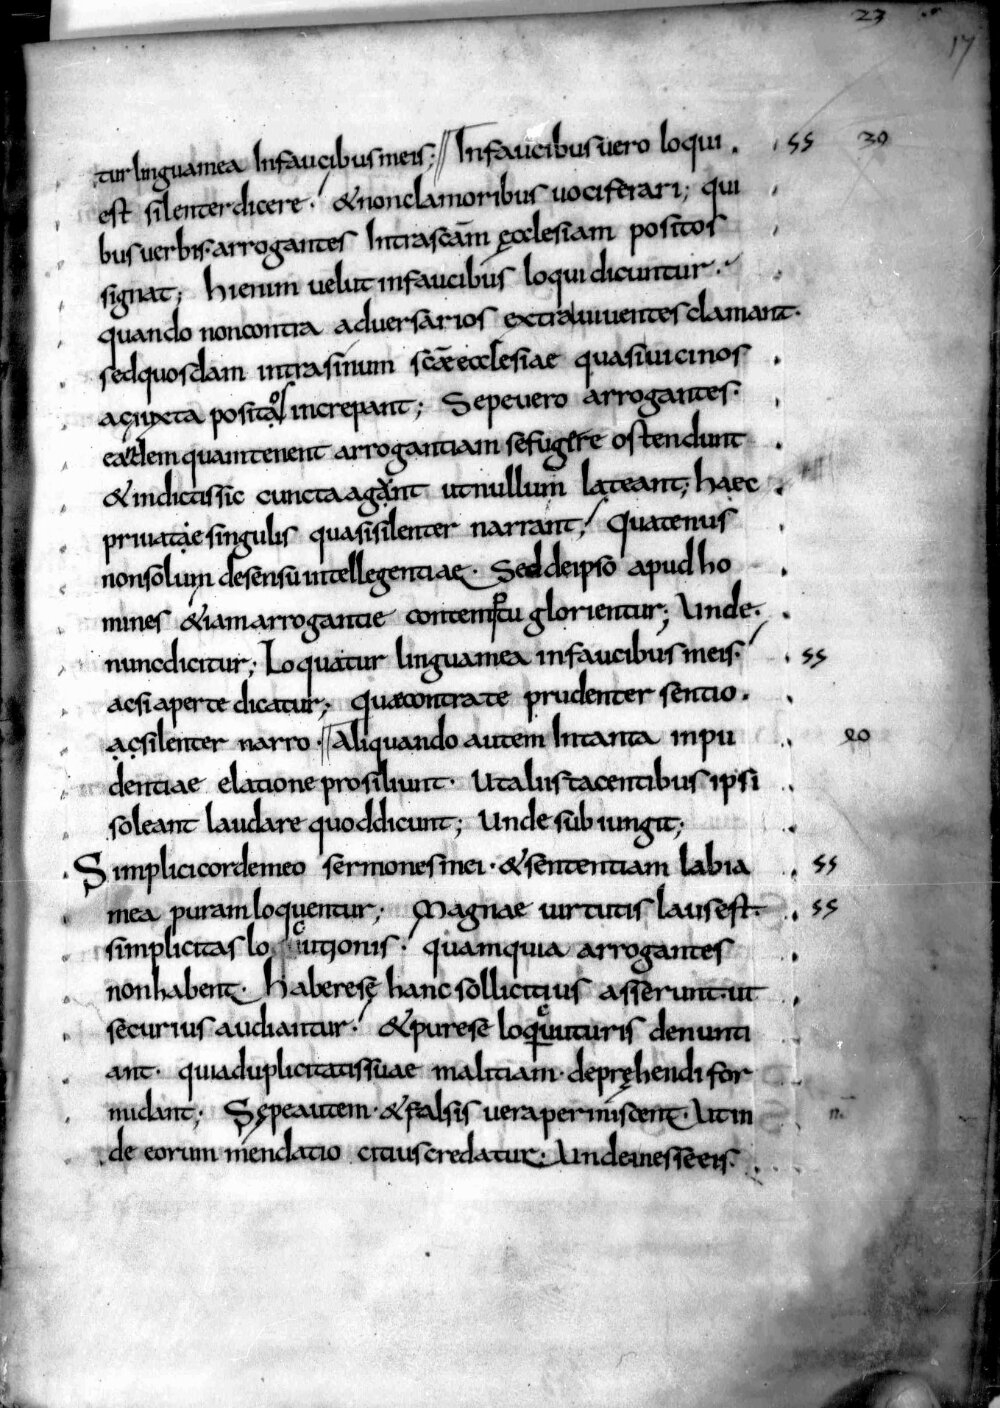 23
17
tur lingua mea In faucibus meis; In faucibus vero loqui . ss 39
est silenter dicere. & non clamoribus uociferari; qui
bus uerbis. arrogantes Intra scam ęcclesiam positos
signat; hi enim uelut in faucibus loqui dicuntur.
quando non contra aduersarios extra uiuentes clamant.
sed quosdam intra sinum scae ecclesiae quasi uicinos
ac iuxta positos increpant; Sepe uero arrogantes.
eandem quam tenent arrogantiam se fugere ostendunt
& indictis sic cuncta agant ut nullum lateant; haec
priuatae singulis quasi silenter narrant; Quatenus
non solum de sensu intellegentiae. Sed de ipso apud ho
mines & iam arrogantie contemptu glorientur; Unde.
nunc dicitur; Loquatur lingua mea in faucibus meis. ss
ac si aperte dicatur; quae contra te prudenter sentio.
ac silenter narro. Aliquando autem In tanta inpu 20
dentiae elatione prosiliunt. Ut alus tacentibus ipsi
soleant laudare quod dicunt; Unde subiungit;
Simplici corde meo sermones mei. & sententiam labia ss
mea puram loquentur; Magnae uirtutis laus est. ss
simplicitas locutionis. quam quia arrogantes
non habent. habere sę hanc sollicitius asserunt. ut
securius audiantur. & pure se locuturis denunti
ant. quia duplicitatis suae malitiam. depręhendi for
midant; Sępe autem. & falsis uera permiscent. Ut in
de eorum mendatio citius credatur. Unde inesse eis.